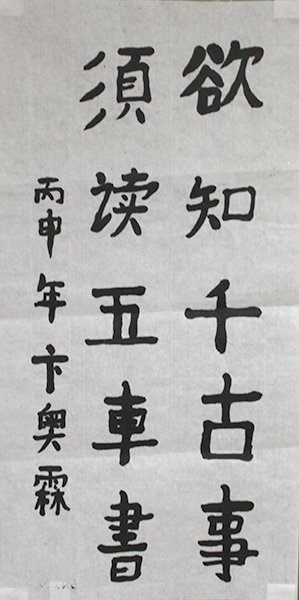 欲知千古事
須读五車書
丙申年卞奥霖